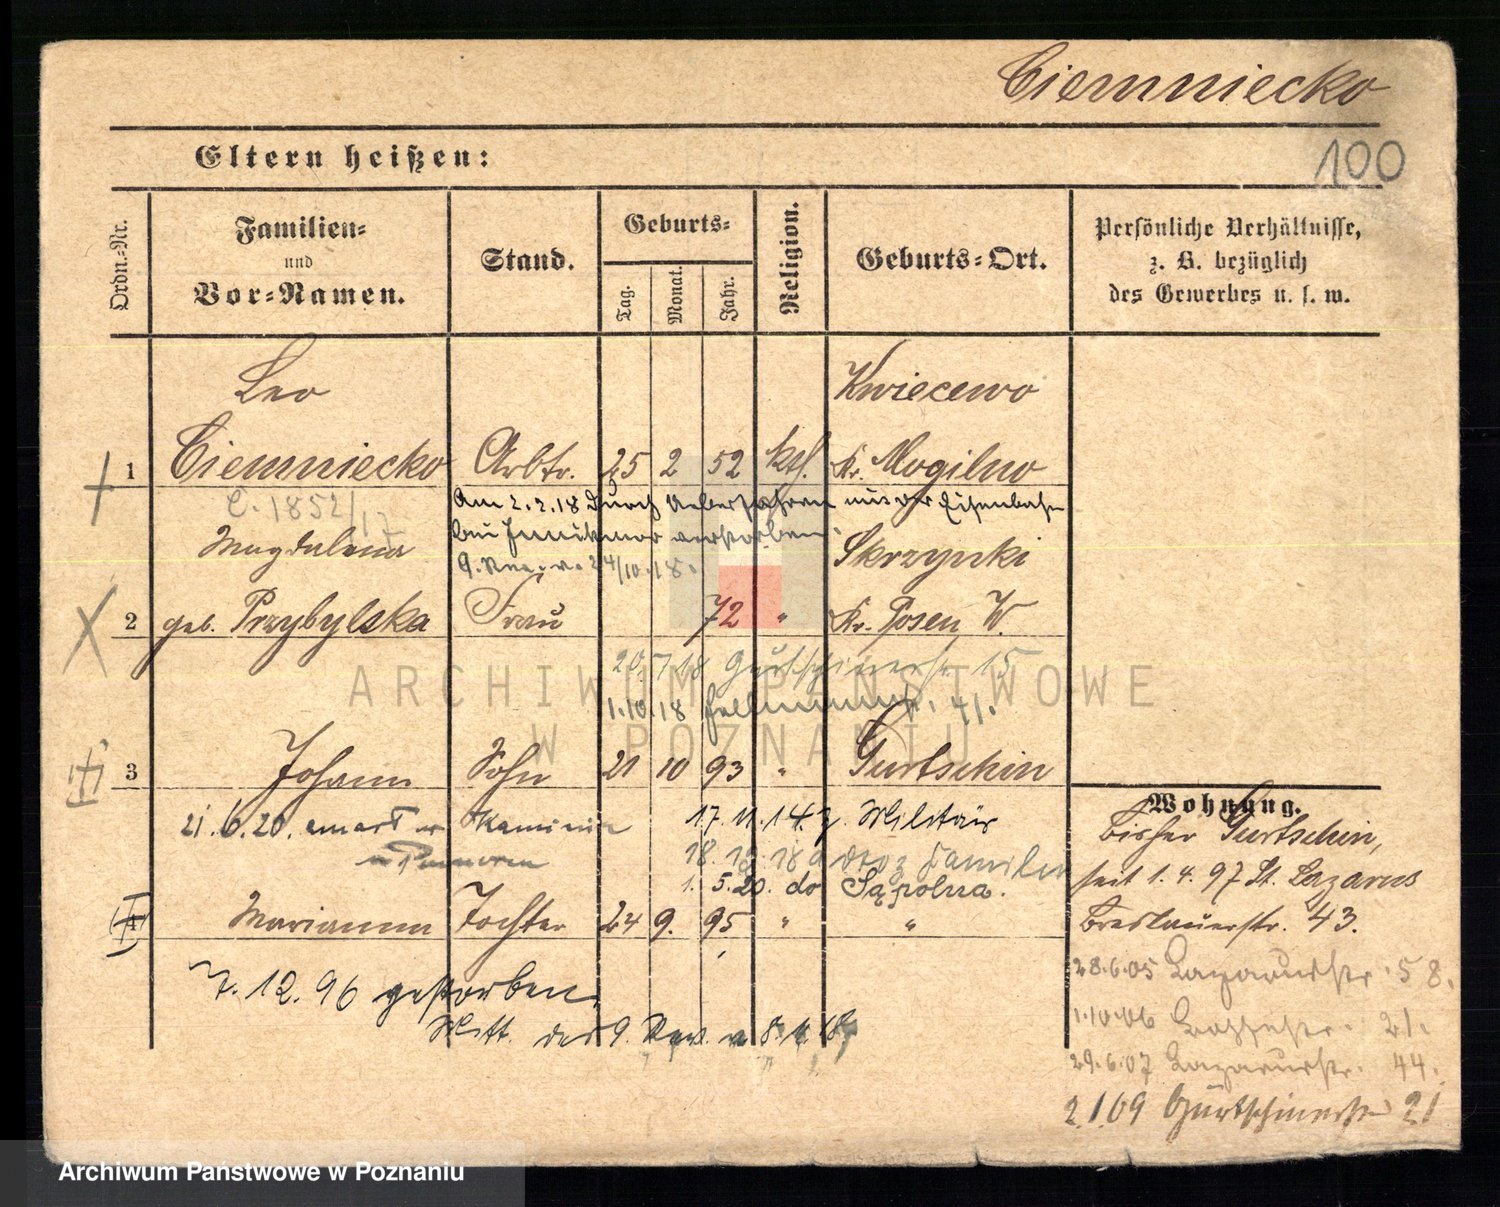 Ciemniecko
100
Eltern heißen:
Ordn.-Nr.
Familien-
und
Vor-Namen.
Stand.
Geburts-
Tag.
Monat.
Jahr.
Religion.
Geburts-Ort.
Persönliche Verhältnisse,
z. B. bezüglich
des Gewerbes u. s. w.
Leo Kwiecewo
1 Ciemniecko Arbtr. 25 2 52 kth. Kr. Mogilno
C. 1852/17
Am 2.2.18 durch Ueberfahren mit der Eisenbahn
bei verstorben.
9. Rev. v. 24/10.18.
Magdalena Skrzynki
2 geb. Przybylska Frau 72 " Kr. Posen W.
20.7.18 Gurtschinerstr. 15
1.10.18 41.
3 Johann Sohn 21 10 93 " Gurtschin
21.6.20. Kaminia
17.11.14. z. Militär
18. 18 Familie
1.5.20. do Sąpolna.
4 Marianna Tochter 24 9. 95 " "
7.12.96 gestorben.
Mitt. des 9. Rev. v. 8. 18
Wohnung.
Bisher Gurtschin,
seit 1.4.97 St. Lazarus
Breslauerstr. 43.
28.6.05 Lazarusstr. 58.
1.10.06 21.
29.6.07 Lazarusstr. 44.
2.1.09 Gurtschinerstr 21
ARCHIWUM PAŃSTWOWE
W POZNANIU
Archiwum Państwowe w Poznaniu